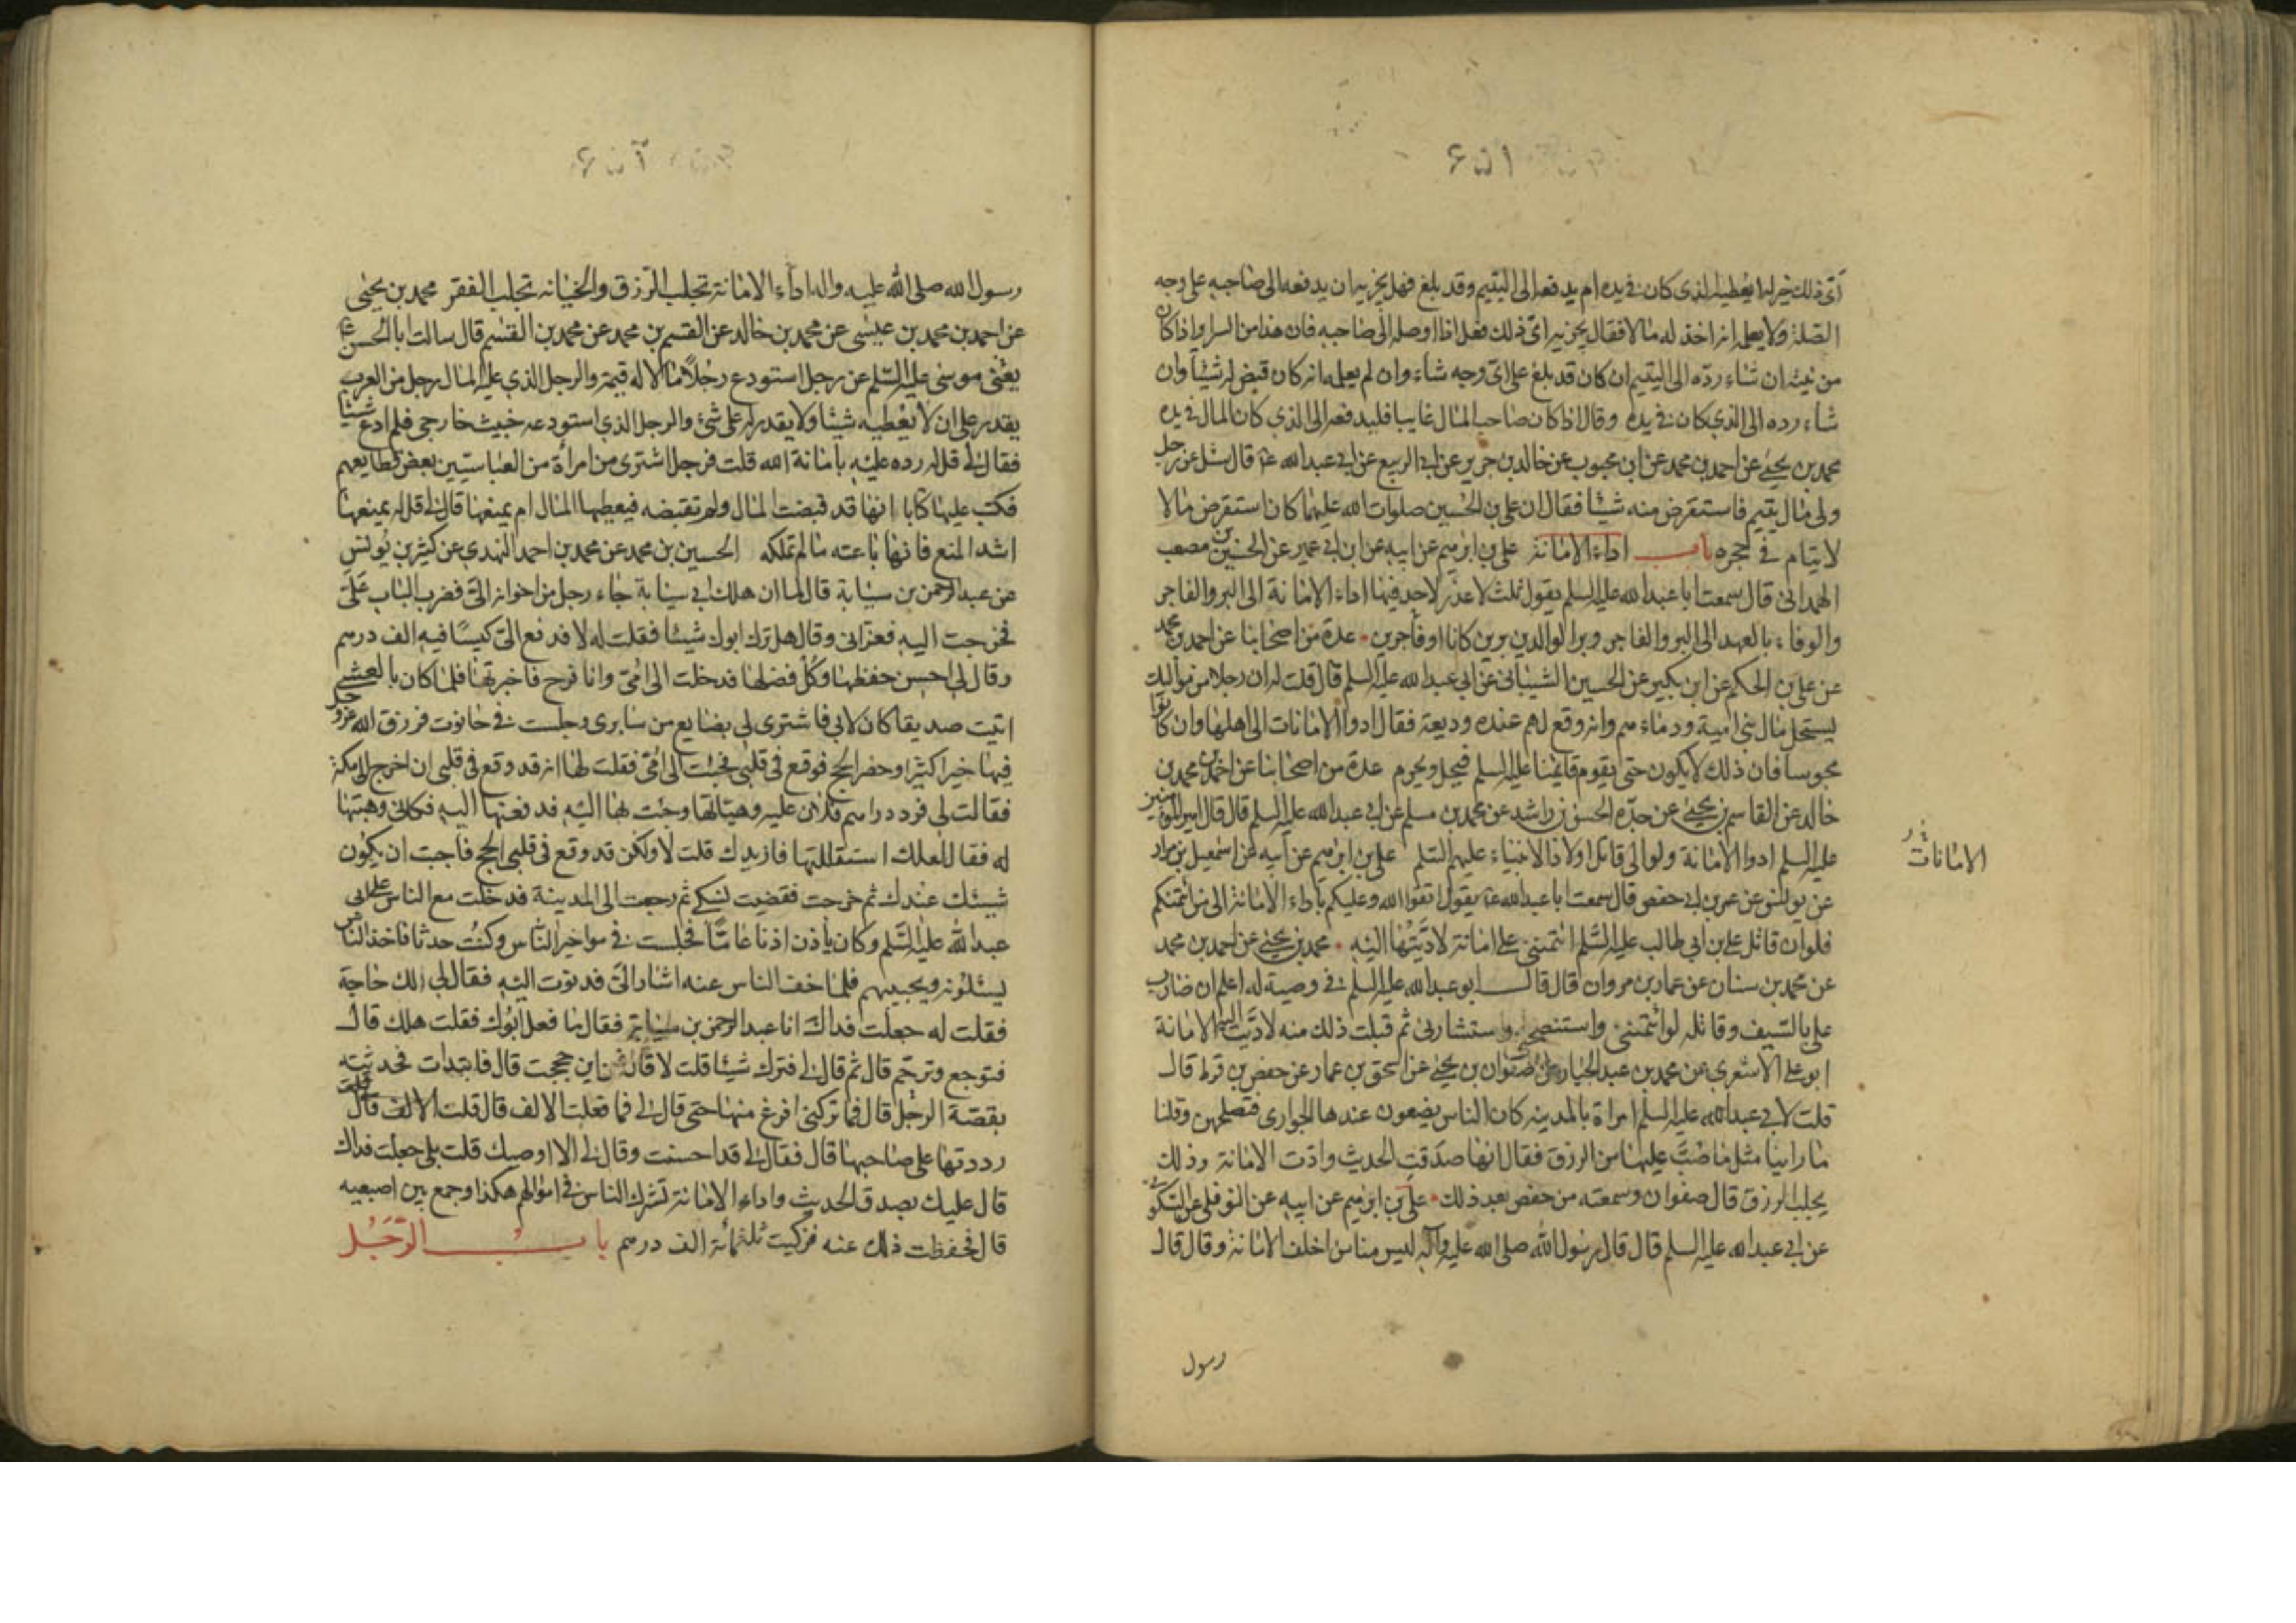 اى ذلك خير له ايعطيه الذى كان فى يده ام يدفعه الى اليتيم وقد بلغ فهل يجزيه ان يدفعه الى صاحبه على وجه
الصلة ولا يعلمه انه اخذ له مالا فقال يجزيه اىّ ذلك فعل اذا اوصله الى صاحبه فان هذا من السراير اذا كان
من نيته ان شاء ردّه الى اليتيم ان كان قد بلغ على اىّ وجه شاء وان لم يعلمه انه كان قبض له شيئا وان
شاء رده الى الذي كان فى يده وقال اذا كان صاحب المال غايبا فليدفعه الى الذي كان المال فى يده
محمد بن يحيى عن احمد بن محمد عن ابن محبوب عن خالد بن جرير عن ابى الربيع عن ابى عبد الله ع قال سئل عن رجل
ولى مال يتيم فاستقرض منه شيئا فقال ان على بن الحسين صلوات الله عليهما كان استقرض مالا
لايتام فى حجره باب اداء الامانة على بن ابرهيم عن ابيه عن ابن ابى عمير عن الحسين بن مصعب
الهمدانى قال سمعت ابا عبد الله عليه السلم يقول ثلث لا عذر لاحد فيها اداء الامانة الى البر والفاجر
والوفاء بالعهد الى البر والفاجر وبر الوالدين برين كانا او فاجرين عدة من اصحابنا عن احمد بن محمد
عن على بن الحكم عن ابن بكير عن الحسين الشيبانى عن ابى عبد الله عليه السلم قال قلت له ان رجلا من مواليك
يستحل مال بنى امية ودماءهم وانه وقع لهم عنده وديعة فقال ادوا الامانات الى اهلها وان كانوا
مجوسا فان ذلك لا يكون حتى يقوم قايمنا عليه السلم فيحل ويحرم عدة من اصحابنا عن احمد بن محمد بن
خالد عن القاسم بن يحيى عن جدّه الحسن بن راشد عن محمد بن مسلم عن ابى عبد الله عليه السلم قال قال امير المؤمنين
عليه السلم ادوا الامانة ولو الى قاتل اولاد الانبياء عليهم السلم على بن ابرهيم عن ابيه عن اسمعيل بن مرار
عن يونس عن عمر بن ابى حفص قال سمعت ابا عبد الله ع يقول اتقوا الله وعليكم باداء الامانة الى من ائتمنكم
فلو ان قاتل على بن ابي طالب عليه السلم ائتمنى على امانة لادّيتها اليه محمد بن يحيى عن احمد بن محمد
عن محمد بن سنان عن عمار بن مروان قال قال ابو عبد الله عليه السلم فى وصية له اعلم ان ضارب
على بالسيف وقاتله لو ائتمنى واستنصحنى واستشارنى ثم قبلت ذلك منه لادّيت اليه الامانة
ابو على الاشعرى عن محمد بن عبد الجبار عن صفوان بن يحيى عن اسحق بن عمار عن حفص بن قرط قال
قلت لابى عبد الله عليه السلم امراة بالمدينه كان الناس يضعون عندها الجوارى فتصلحهن وقلنا
ما راينا مثل ما صُبّ عليها من الرزق فقال انها صدقت الحديث وادّت الامانة وذلك
يجلب الرزق قال صفوان وسمعته من حفص بعد ذلك على بن ابرهيم عن ابيه عن النوفلى عن السكونى
عن ابى عبد الله عليه السلم قال قال رسول الله صلى الله عليه وآله ليس منا من اخلف الامانة وقال قال
رسول
الامانات
رسول الله صلى الله عليه واله اداء الامانة تجلب الرزق والخيانه تجلب الفقر محمد بن يحيى
عن احمد بن محمد بن عيسى عن محمد بن خالد عن القسم بن محمد عن محمد بن القسم قال سالت ابا الحسن ع
يعنى موسى عليه السلم عن رجل استودع رجلاً مالا له قيمة والرجل الذي عليه المال رجل من العرب
يقدر على ان لا يعطيه شيئا ولا يقدر له على شئ والرجل الذي استودعه خبيث خارجى فلم ادع شيئا
فقال لى قل له رده عليه بامانة الله قلت فرجل اشترى من امراة من العباسيين بعض قطايعهم
فكتب عليها كتابا انها قد قبضت المال ولم تقبضه فيعطيها المال ام يمنعها قال لى قل له يمنعها
اشد المنع فانها باعته ما لم تملكه الحسين بن محمد عن محمد بن احمد النهدى عن كثير بن يونس
عن عبد الرحمن بن سيابة قال لما ان هلك ابى سيابة جاء رجل من اخوانه الىّ فضرب الباب علىّ
فخرجت اليه فعزانى وقال هل ترك ابوك شيئا فقلت له لا فدفع الىّ كيسًا فيه الف درهم
وقال لى احسن حفظها وكل فضلها فدخلت الى امّى وانا فرح فاخبرتها فلما كان بالعشى
اتيت صديقا كان لابى فاشترى لى بضايع من سابرى وجلست فى حانوت فرزق الله عز وجل
فيها خيرا كثيرا وحضر الحج فوقع فى قلبى فجئت الى امّى فقلت لها انه قد وقع فى قلبى ان اخرج الى مكة
فقالت لى فرد دراهم فلان عليه وهيّاتها وجئت بها اليه فدفعتها اليه فكانى وهبتها
له فقال لعلك استقللتها فازيدك قلت لا ولكن قد وقع فى قلبى الحج فاحبت ان يكون
شيئك عندك ثم خرجت فقضيت نسكى ثم رجعت الى المدينة فدخلت مع الناس على ابى
عبد الله عليه السلم وكان ياذن اذنا عامّا فجلست فى مواخير الناس وكنت حدثا فاخذ الناس
يسئلونه ويجيبهم فلما خف الناس عنه اشار الىّ فدنوت اليه فقال لى الك حاجة
فقلت له جعلت فداك انا عبد الرحمن بن سيابة فقال ما فعل ابوك فقلت هلك قال
فتوجع وترحّم قال ثم قال لى فترك شيئا قلت لا قال فمن اين حججت قال فابتدات فحدثته
بقصة الرجل قال فما تركنى افرغ منها حتى قال لى فما فعلت الالف قال قلت الالف قال قلت
رددتها على صاحبها قال فقال لى قد احسنت وقال لى الا اوصيك قلت بلى جعلت فداك
قال عليك بصدق الحديث واداء الامانة تشرك الناس فى اموالهم هكذا وجمع بين اصبعيه
قال فحفظت ذلك عنه فزكيت ثلثمائة الف درهم باب الرّجُل